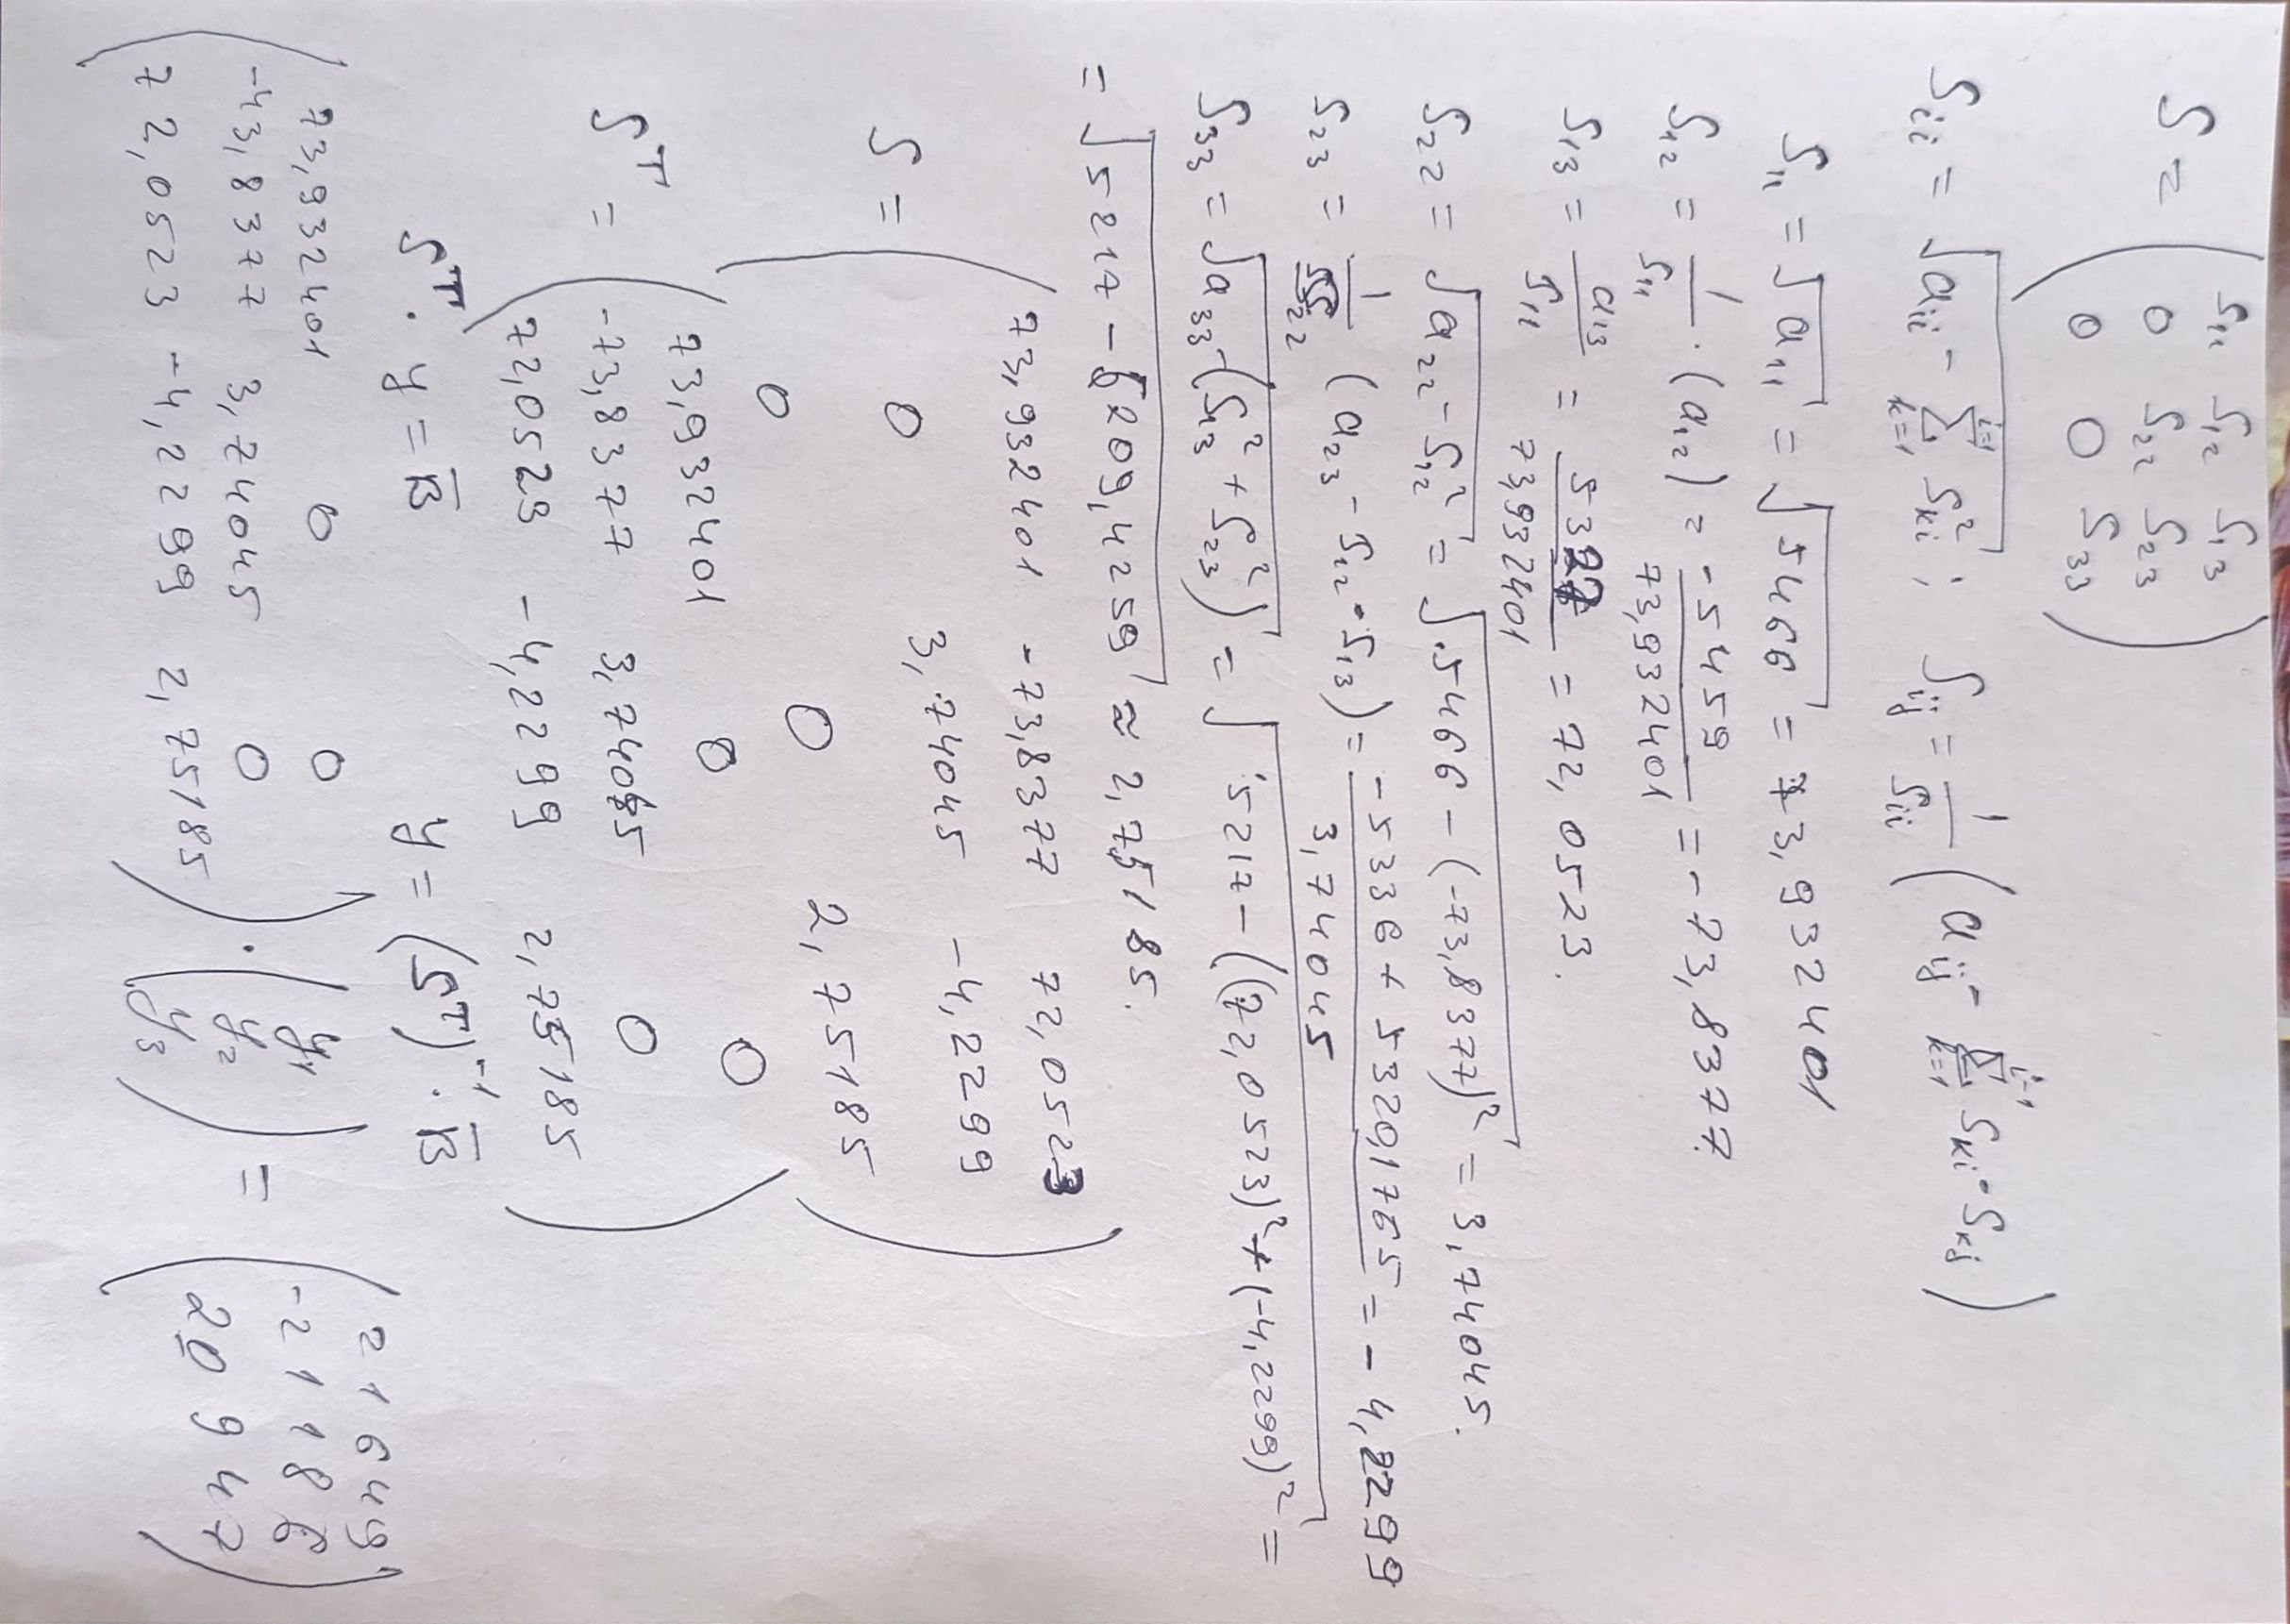 S = ( S₁₁ S₁₂ S₁₃
0 S₂₂ S₂₃
0 0 S₃₃ )
Sᵢᵢ = √(aᵢᵢ - ∑ₖ₌₁ⁱ⁻¹ S²ₖᵢ) ; Sᵢⱼ = 1/Sᵢᵢ (aᵢⱼ - ∑ₖ₌₁ⁱ⁻¹ Sₖᵢ · Sₖⱼ)
S₁₁ = √a₁₁ = √5466 = 73,932401
S₁₂ = 1/S₁₁ · (a₁₂) = -5459/73,932401 = -73,8377
S₁₃ = a₁₃/S₁₁ = 5327/73,932401 = 72,0523.
S₂₂ = √(a₂₂ - S₁₂²) = √(5466 - (-73,8377)²) = 3,74045.
S₂₃ = 1/S₂₂ (a₂₃ - S₁₂ · S₁₃) = (-5336 + 5320,1765)/3,74045 = -4,2299
S₃₃ = √(a₃₃ - (S₁₃² + S₂₃²)) = √(5217 - ((72,0523)² + (-4,2299)² =
= √(5217 - 5209,4259) ≈ 2,75185.
S = ( 73,932401 -73,8377 72,0523
0 3,74045 -4,2299
0 0 2,75185 )
Sᵀ = ( 73,932401 0 0
-73,8377 3,74045 0
72,0523 -4,2299 2,75185 )
Sᵀ · y = B̅ y = (Sᵀ)⁻¹ · B̅
( 73,932401 0 0
-43,8377 3,74045 0
72,0523 -4,2299 2,75185 ) · ( y₁
y₂
y₃ ) = ( 21649
-21186
20947 )